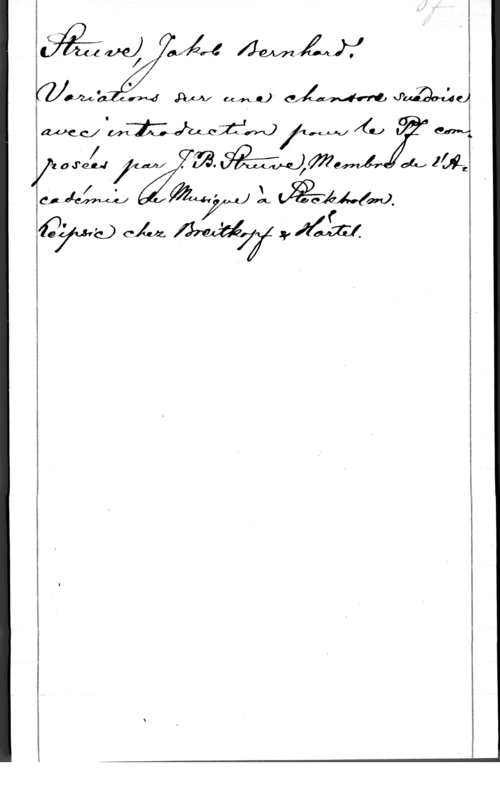 Struve, Jakob Bernhard:
Variations sur une chanson suédoise
avec introduction pour le Pf com-
posées par J. B. Struve, Membre de l'A-
cadémie de Musique à Stockholm.
Leipsic chez Breitkopf & Härtel.